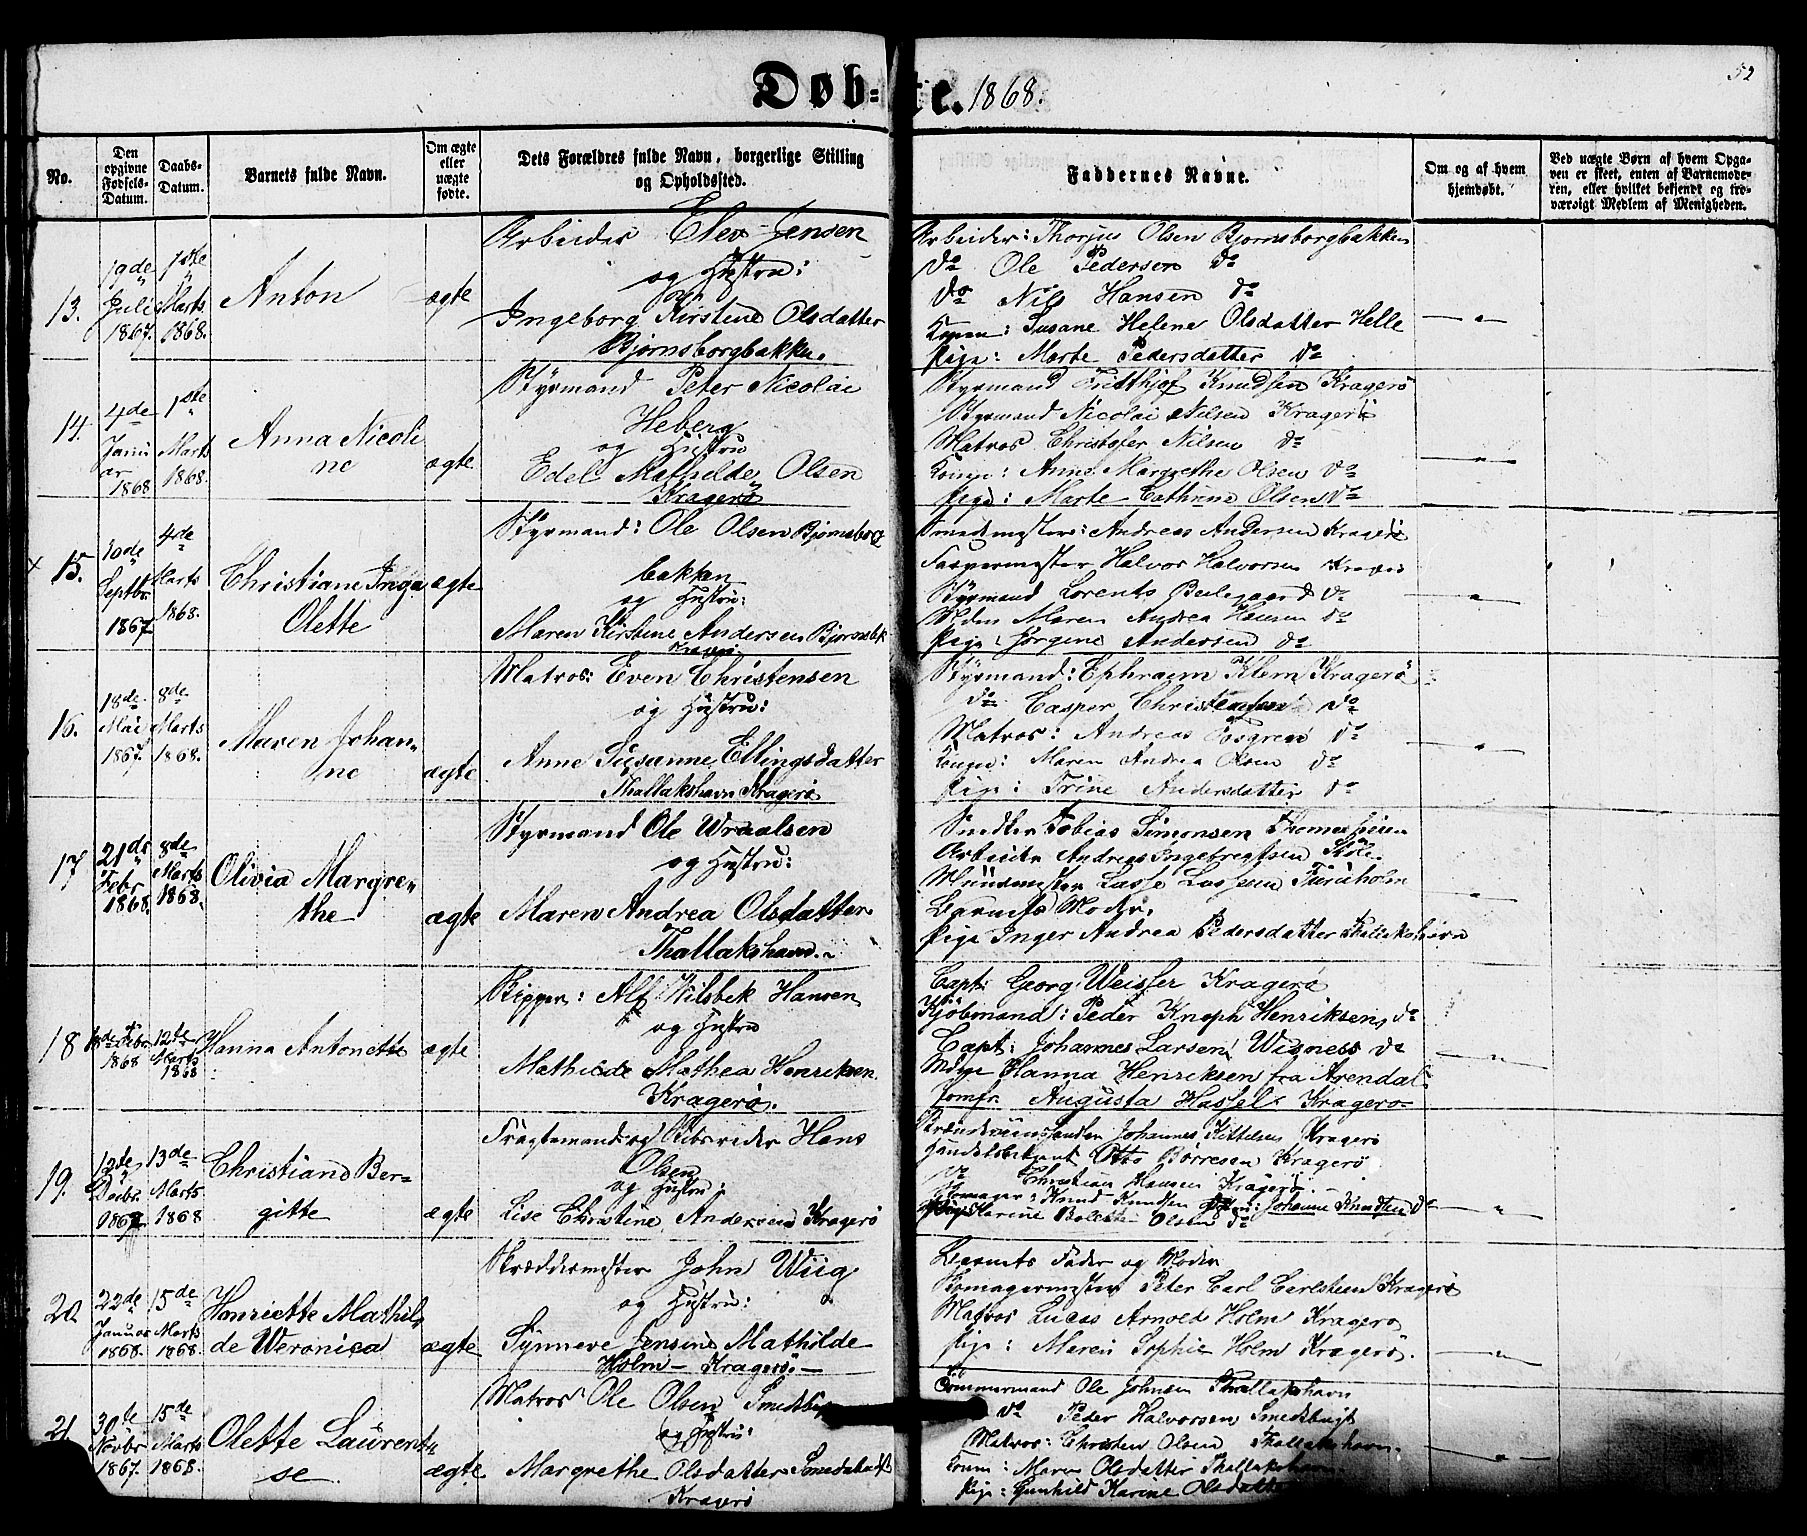 Døb-te. 1868.
52
No.
Den opgivne Fødsels-Datum.
Daabs-Datum.
Barnets fulde Navn.
Om ægte eller uægte fødte.
Dets Forældres fulde Navn, borgerlige Stilling og Opholdssted.
Faddernes Navne.
Om og af hvem hjemdøbt.
Ved uægte Børn af hvem Opga-
ven er skeet, enten af Barnemode-
ren, eller hvilket bekjendt og tro-
værdigt Medlem af Menigheden.
13.
19de Juli 1867.
1ste Marts 1868.
Anton
ægte
Arbeider Elev Jensen
og Hustru:
Ingeborg Kirstine Olsdatter
Bjørnsborgbakken.
Arbeider: Thorjus Olsen Bjornsborgbakken
do Ole Pedersen do
do Nils Hansen do
Konen: Susane Helene Olsdatter Helle
Pige: Marte Pedersdatter do
14.
4de Januar 1868
1ste Marts 1868.
Anna Nicoli
ne
ægte
Styrmand Peter Nicolai
Heberg
og Hustru
Edel Mathilde Olsen
Kragerø
Styrmand Fritthjof Knudsen Kragerö
Styrmand Nicolai Nilsen Kragerö
Matros Christofer Nilsen do
Kone: Anne Margrethe Olsen do
Pige: Marte Cathrine Olsen do
x 15.
10de Septbr. 1867
4de Marts 1868.
Christiane Inga
Olette
ægte
Styrmand: Ole Olsen Bjørnsborg
bakken
og Hustru:
Maren Kirstine Andersen Bjørnsbk
Smedmester: Andreas Andersen Kragerö
Halvor Halvorsen
Styrmand Lorents do
Maren Andrea Hansen do
Pige: Jørgine Andersen do
16.
18de Mai 1867.
8de Marts 1868.
Maren Johan-
ne
ægte
Matros: Even Christensen
og Hustru:
Anne Susanne Ellingsdatter
Thallakshavn Kragerø
Styrmand: Ephraim Klem Kragerö
do Casper Christensen do
Matros: Andreas do
Konen: Maren Andrea Olsen do
Pige: Trine Andersdatter do
17
21de Febr 1868.
8de Marts 1868.
Olivia Margre-
the
ægte
Styrmand Ole Wraalsen
og Hustru:
Maren Andrea Olsdatter
Thallakshavn.
Snedker Tobias Simonsen Thomesheien
Arbeider Andreas Ingebregtsen Støle.
Lasse Lassesen Furuholm
Barnets Moder.
Pige Inger Andrea Pedersdatter Thallakshavn
18
18de Febr. 1868
12te Marts 1868
Hanna Antonette
ægte
Skipper: Alf Nilsbek Hansen
og Hustru
Mathilde Mathea Henriksen
Kragerø.
Capt: Georg Weisser Kragerø
Kjøbmand: Peder Knoph Henriksen do
Capt: Johannes Larsen Wisness do
Hanna Henriksen fra Arendal
Jomfr. Augusta Hassel Kragerø
19.
12de Decbr. 1867
13de Marts 1868
Christiane Ber-
gitte
ægte
Fragtemand og Hans
Olsen
og Hustru:
Lise Christine Andersen Kragerø
Johannes Kittelsen Kragerø
Handelsbetjent Otto Børresen Kragerø
do Christian Hansen Kragerö
Knud Knudsen Johanne Knudsen do
Marine Bolette Olsen do
20.
22de Januar 1868.
15de Marts 1868.
Henriette Mathil-
de Weronica
ægte
Skreddermester John Wiig
og Hustru:
Synneve Jensine Mathilde
Holm - Kragerø. -
Barnets Fader og Moder
Skomagermester Peter Carl Carlstein Kragerø
Matros Lucas Arnold Holm Kragerø
Pige: Maren Sophie Holm Kragerö.
21.
30te Novbr 1867.
15de Marts 1868.
Olette Laurent-
se
ægte
Matros Ole Olsen
og Hustru:
Margrethe Olsdatter
Kragerø
Tömmermand Ole Johnsen Thallakshavn
do Peder Halvorsen Smedsbugt
Matros: Christen Olsen Thallakshavn.
Konen: Maren Olsdatter Thallakshavn.
Pige: Gunhild Karine Olsdatter